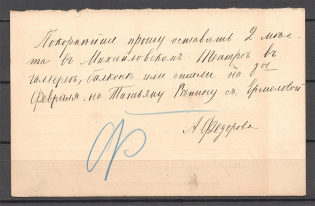 Покорнѣйше прошу оставить 2 мѣс-
та въ Михайловскомъ Театрѣ въ
галлереѣ, балконѣ или
на 2ое
Февраля на Татьяну Рѣпину съ Ермоловой
А. Федорова